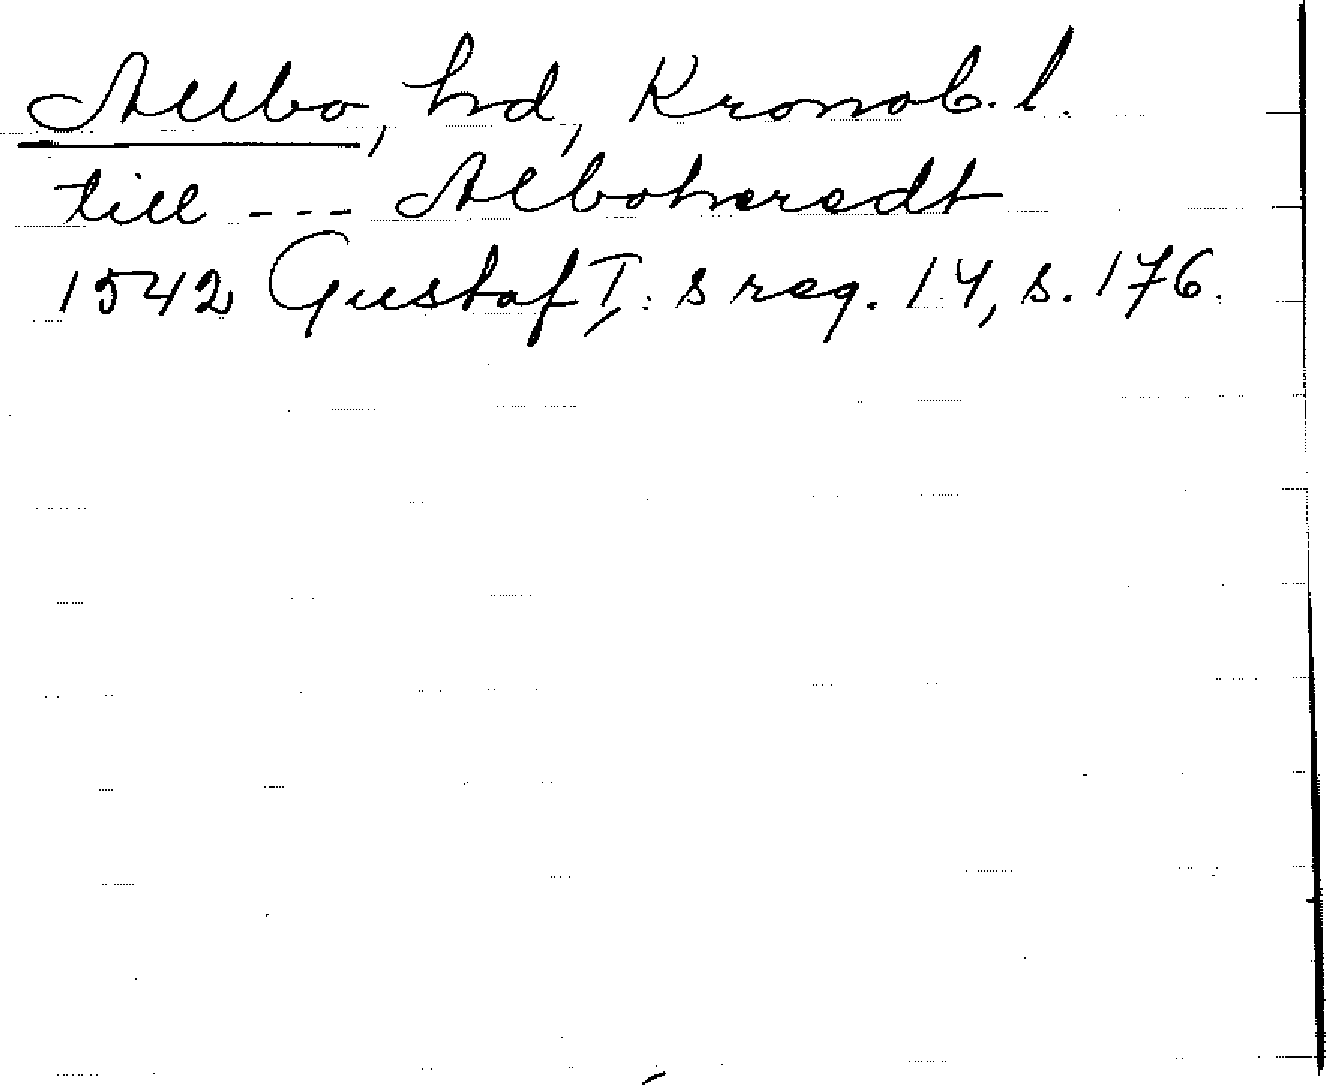 Allbo, hd, Kronob. l.
till --- Alboheredt
1542 Gustaf I:s reg. 14, s. 176.